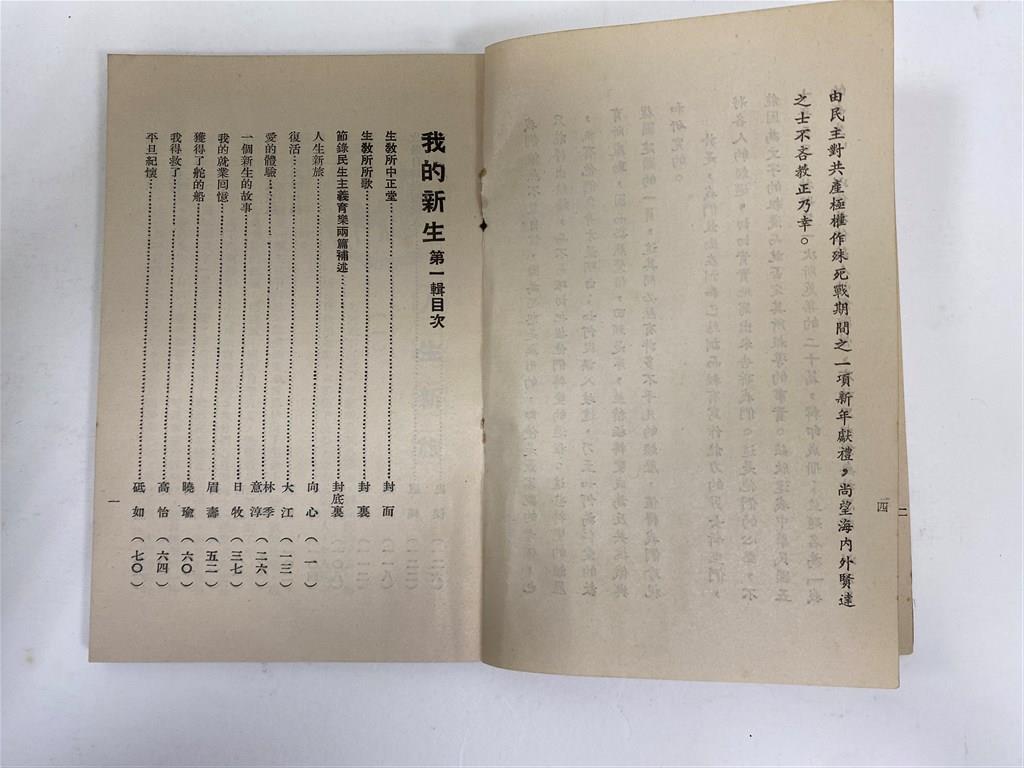 由民主對共產極權作殊死戰期間之一項新年獻禮，尚望海內外賢達
之士不吝教正乃幸。
四
二
我的新生 第一輯目次
生教所中正堂……封面
生教所所歌……封裏
節錄民生主義育樂兩篇補述……封底裏
人生新旅……向心（一）
復活……大江（一三）
愛的體驗……林季意淳（二六）
一個新生的故事……日牧（三七）
我的就業回憶……眉壽（五二）
獲得了舵的船……曉瑜（六〇）
我得救了……高怡（六四）
平旦紀懷……砥如（七〇）
一